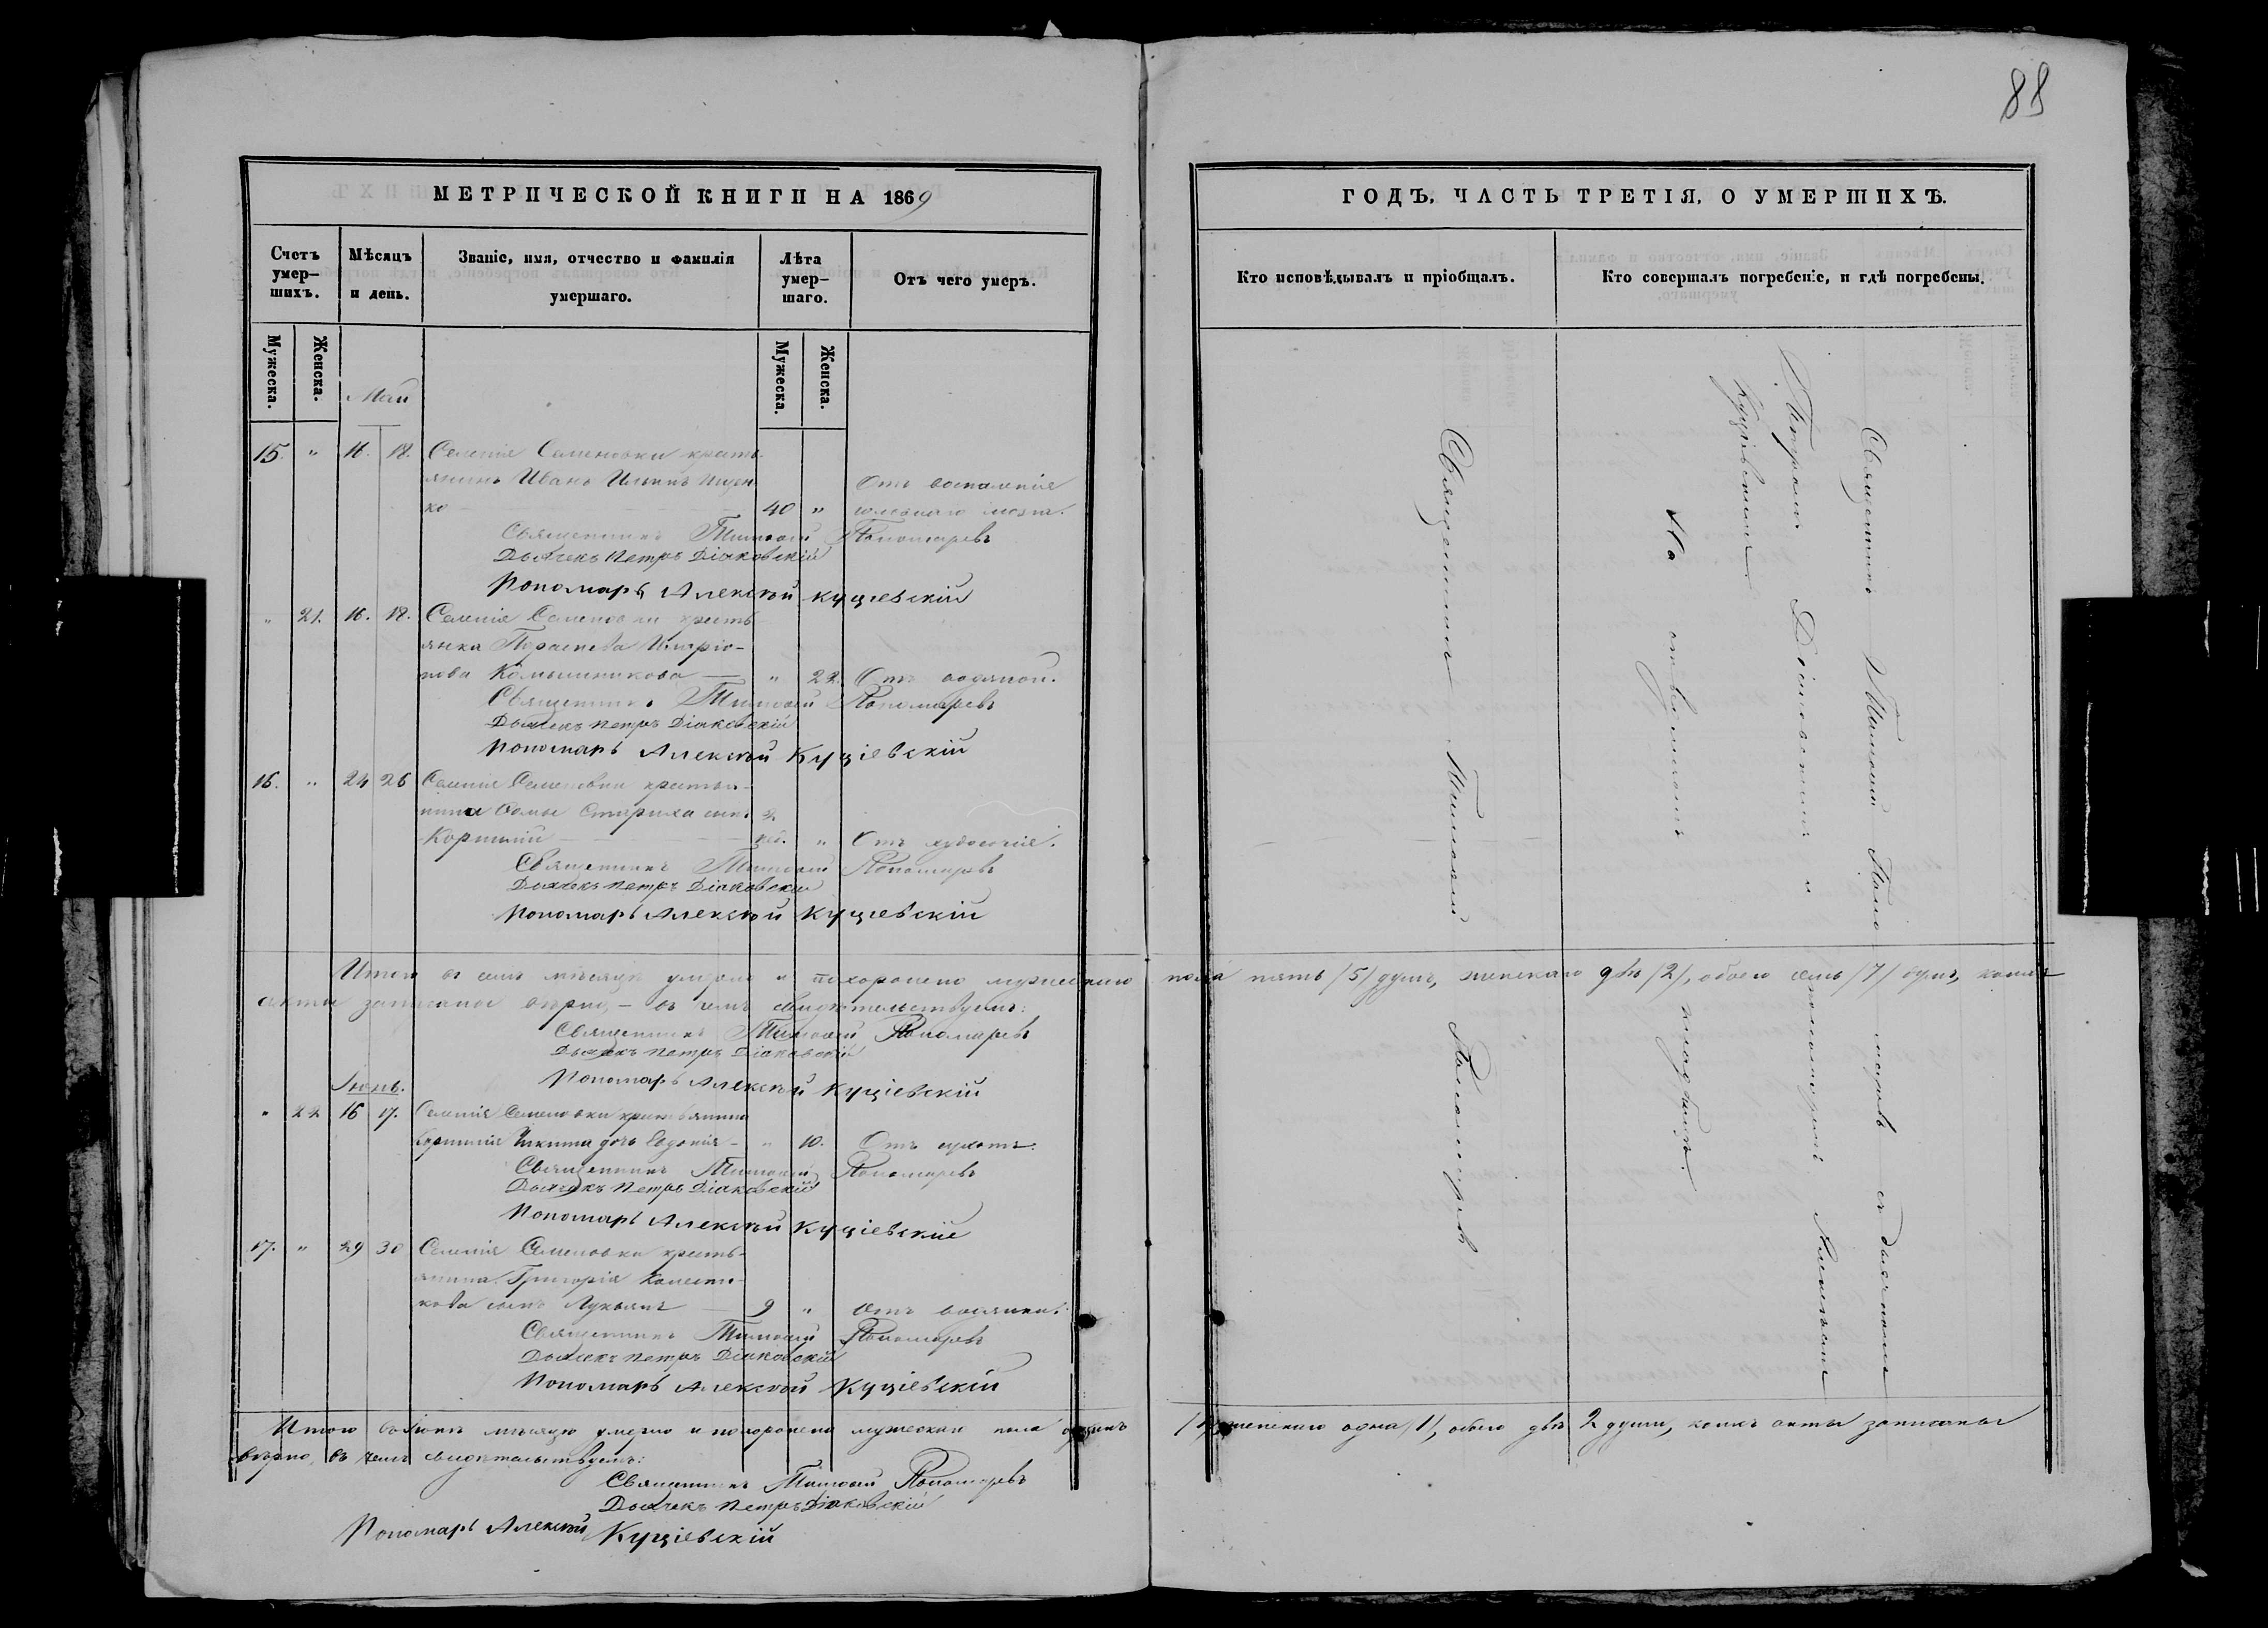 88
МЕТРИЧЕСКОЙ КНИГИ НА 1869
ГОДЪ, ЧАСТЬ ТРЕТІЯ, О УМЕРШИХЪ.
Счетъ умер- шихъ.
Мѣсяцъ и день.
Званіе, имя, отчество и фамилія умершаго.
Лѣта умер- шаго.
Отъ чего умеръ.
Кто исповѣдывалъ и пріобщалъ.
Кто совершалъ погребеніе, и гдѣ погребены.
Мужеска.
Женска.
Май
Мужеска.
Женска.
15. " 16. 18. Селенія Семеновки кресть-
янинъ Иванъ Ильинъ
ко 40 " Отъ воспаленія головнаго мозга.
Священникъ Тимоѳей Пономаревъ
Дьячекъ Петръ Діаковскій
Пономарь Алексѣй Куціевскій
" 21. 16. 18. Селенія Семеновки кресть-
янка Параскева Иларіо-
нова Камышникова " 22. Отъ водяной.
Священникъ Тимоѳей Пономаревъ
Дьячекъ Петръ Діаковскій
Пономарь Алексѣй Куціевскій
16. " 24 26 Селенія Семеновки крестья-
нина Ѳомы сынъ
Корнилій нед. " Отъ
Священникъ Тимоѳей Пономаревъ
Дьячекъ Петръ Діаковскій
Пономарь Алексѣй Куціевскій
Итого въ семъ мѣсяцѣ умерло и похоронено мужескаго пола пять /5/ душъ, женскаго двѣ /2/, обоего семь /7/ душъ, коихъ
акты записаны вѣрно, – въ чемъ свидѣтельствуемъ:
Священникъ Тимоѳей Пономаревъ
Дьячекъ Петръ Діаковскій
Пономарь Алексѣй Куціевскій
Іюнь.
" 22 16 17. Селенія Семеновки крестьянина
Никиты дочь Евдокія " 10. Отъ
Священникъ Тимоѳей Пономаревъ
Дьячекъ Петръ Діаковскій
Пономарь Алексѣй Куціевскій
17. " 29 30 Селенія Семеновки кресть-
янина Григорія
кова сынъ Лукьянъ 9 " Отъ водянки.
Священникъ Тимоѳей Пономаревъ
Дьячекъ Петръ Діаковскій
Пономарь Алексѣй Куціевскій
Итого въ Іюнѣ мѣсяцѣ умерло и похоронено мужеска пола одинъ /1/, женскаго одна /1/, обоего двѣ 2 души, коихъ акты записаны
вѣрно, въ чемъ свидѣтельствуемъ:
Священникъ Тимоѳей Пономаревъ
Дьячекъ Петръ Діаковскій
Пономарь Алексѣй Куціевскій
Священникъ Тимоѳей Пономаревъ
Священникъ Тимоѳей Поно- маревъ съ дьячкомъ
Петромъ Діаковскимъ и пономаремъ Алексѣемъ
Куціевскимъ
На отведенномъ кладбищѣ.